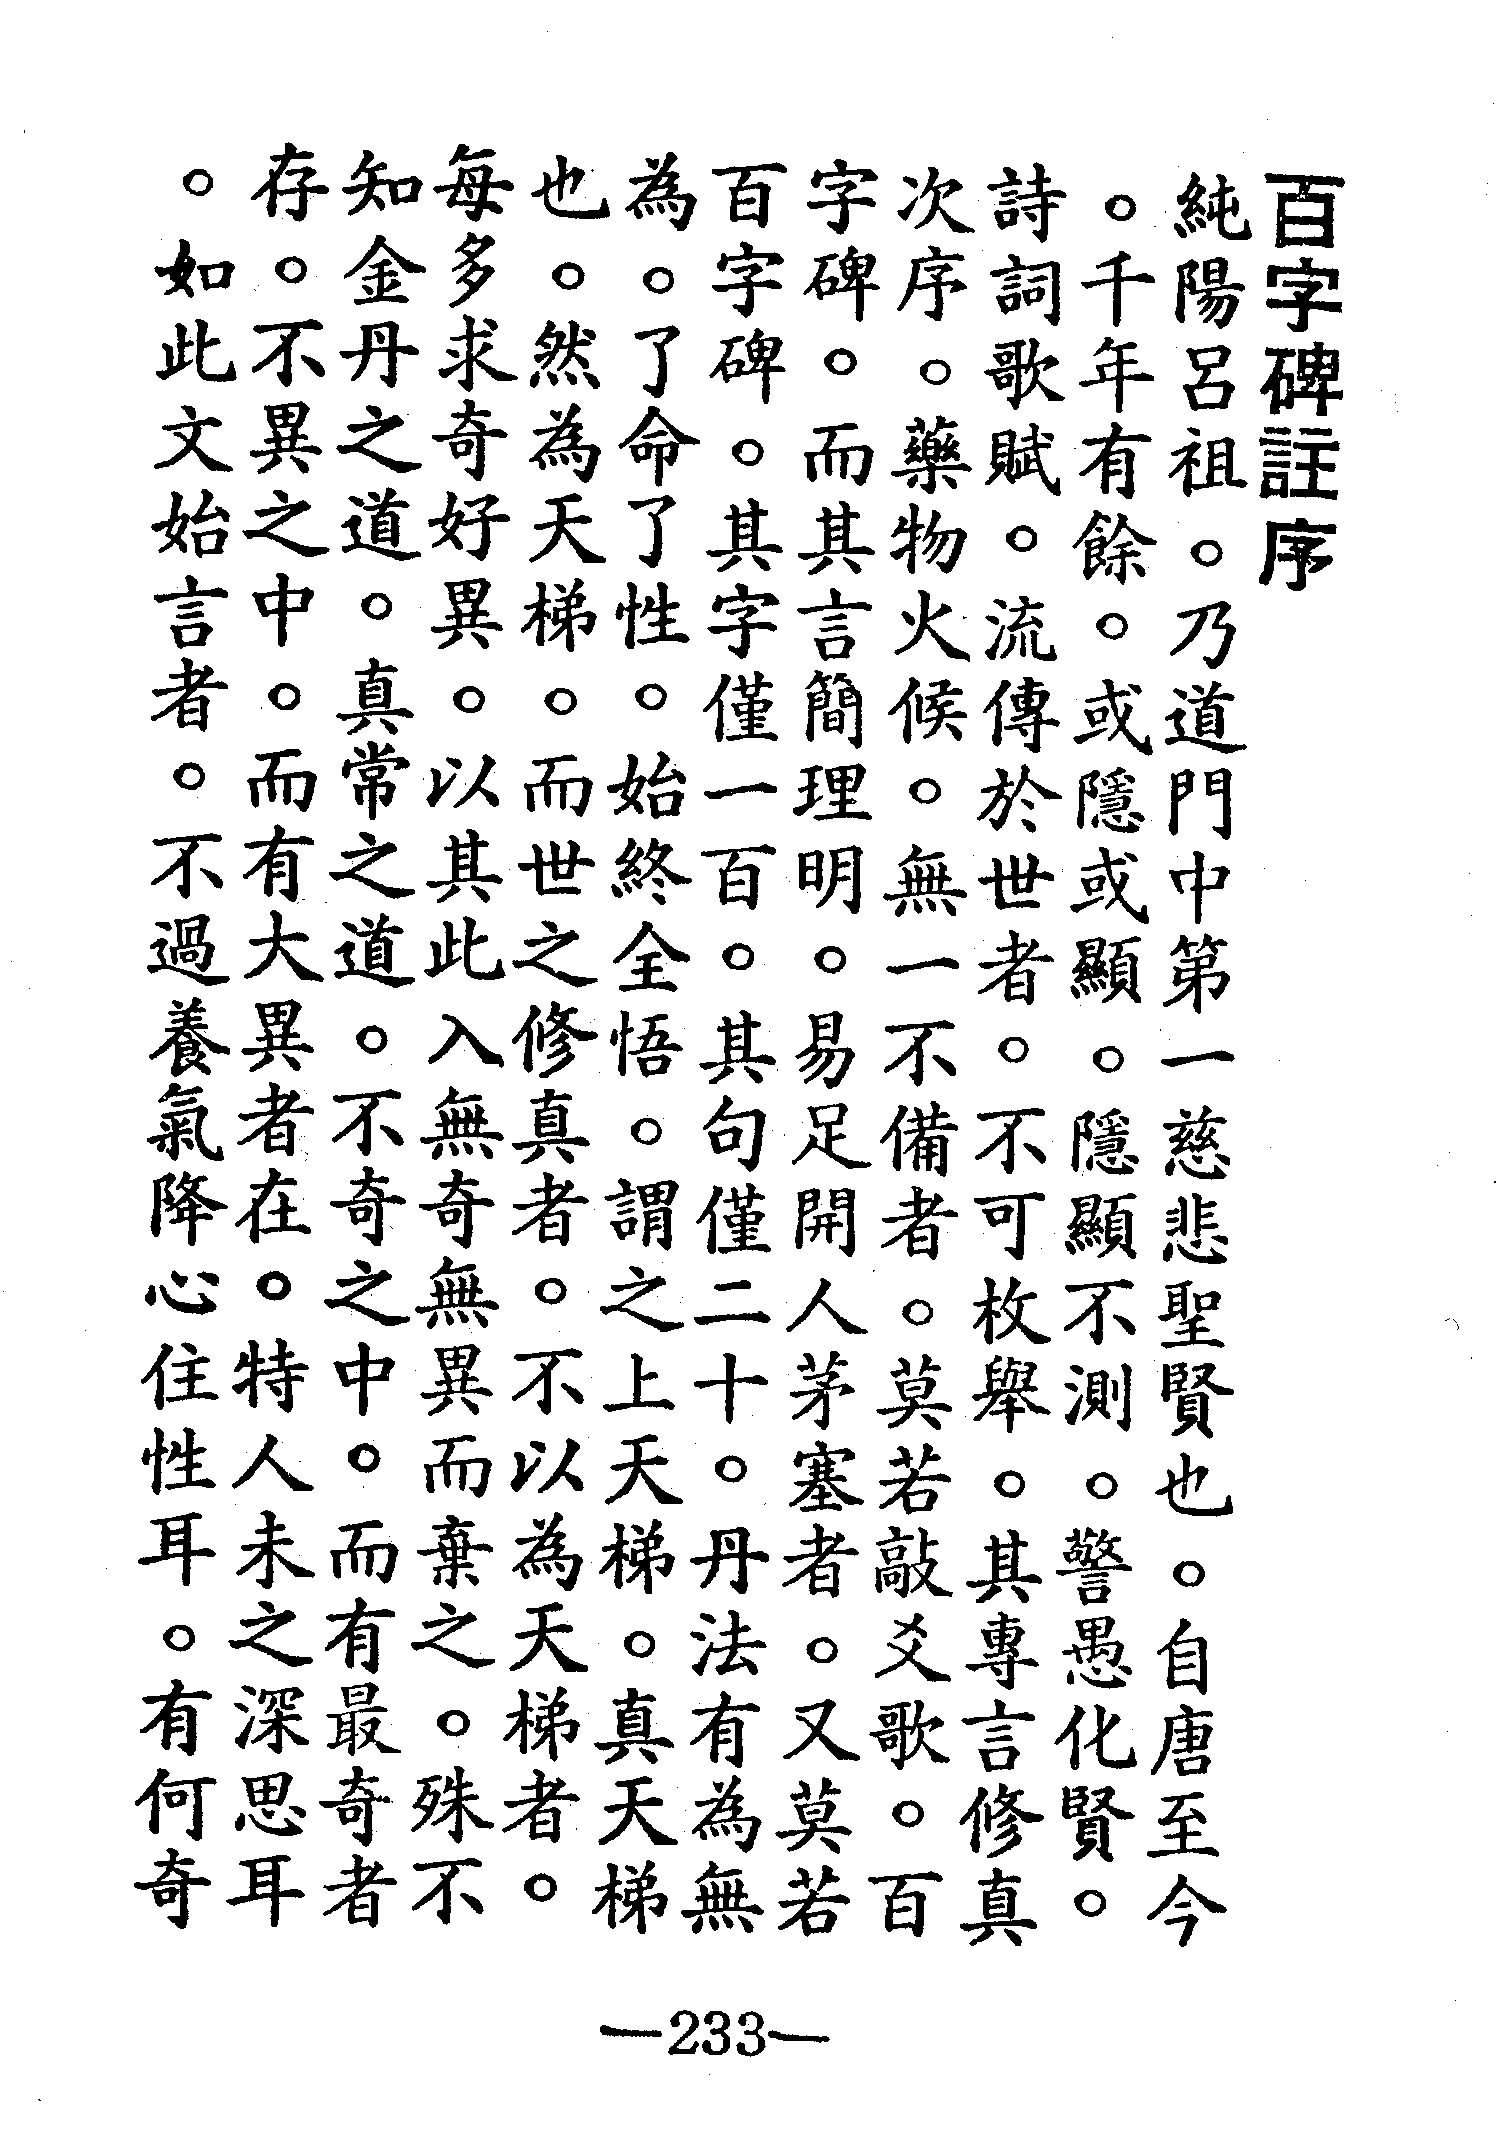 百字碑註序
純陽呂祖。乃道門中第一慈悲聖賢也。自唐至今
。千年有餘。或隱或顯。隱顯不測。警愚化賢。
詩詞歌賦。流傳於世者。不可枚舉。其專言修真
次序。藥物火候。無一不備者。莫若敲爻歌。百
字碑。而其言簡理明。易足開人茅塞者。又莫若
百字碑。其字僅一百。其句僅二十。丹法有為無
為。了命了性。始終全悟。謂之上天梯。真天梯
也。然為天梯。而世之修真者。不以為天梯者。
每多求奇好異。以其此入無奇無異而棄之。殊不
知金丹之道。真常之道。不奇之中。而有最奇者
存。不異之中。而有大異者在。特人未之深思耳
。如此文始言者。不過養氣降心住性耳。有何奇
—233—